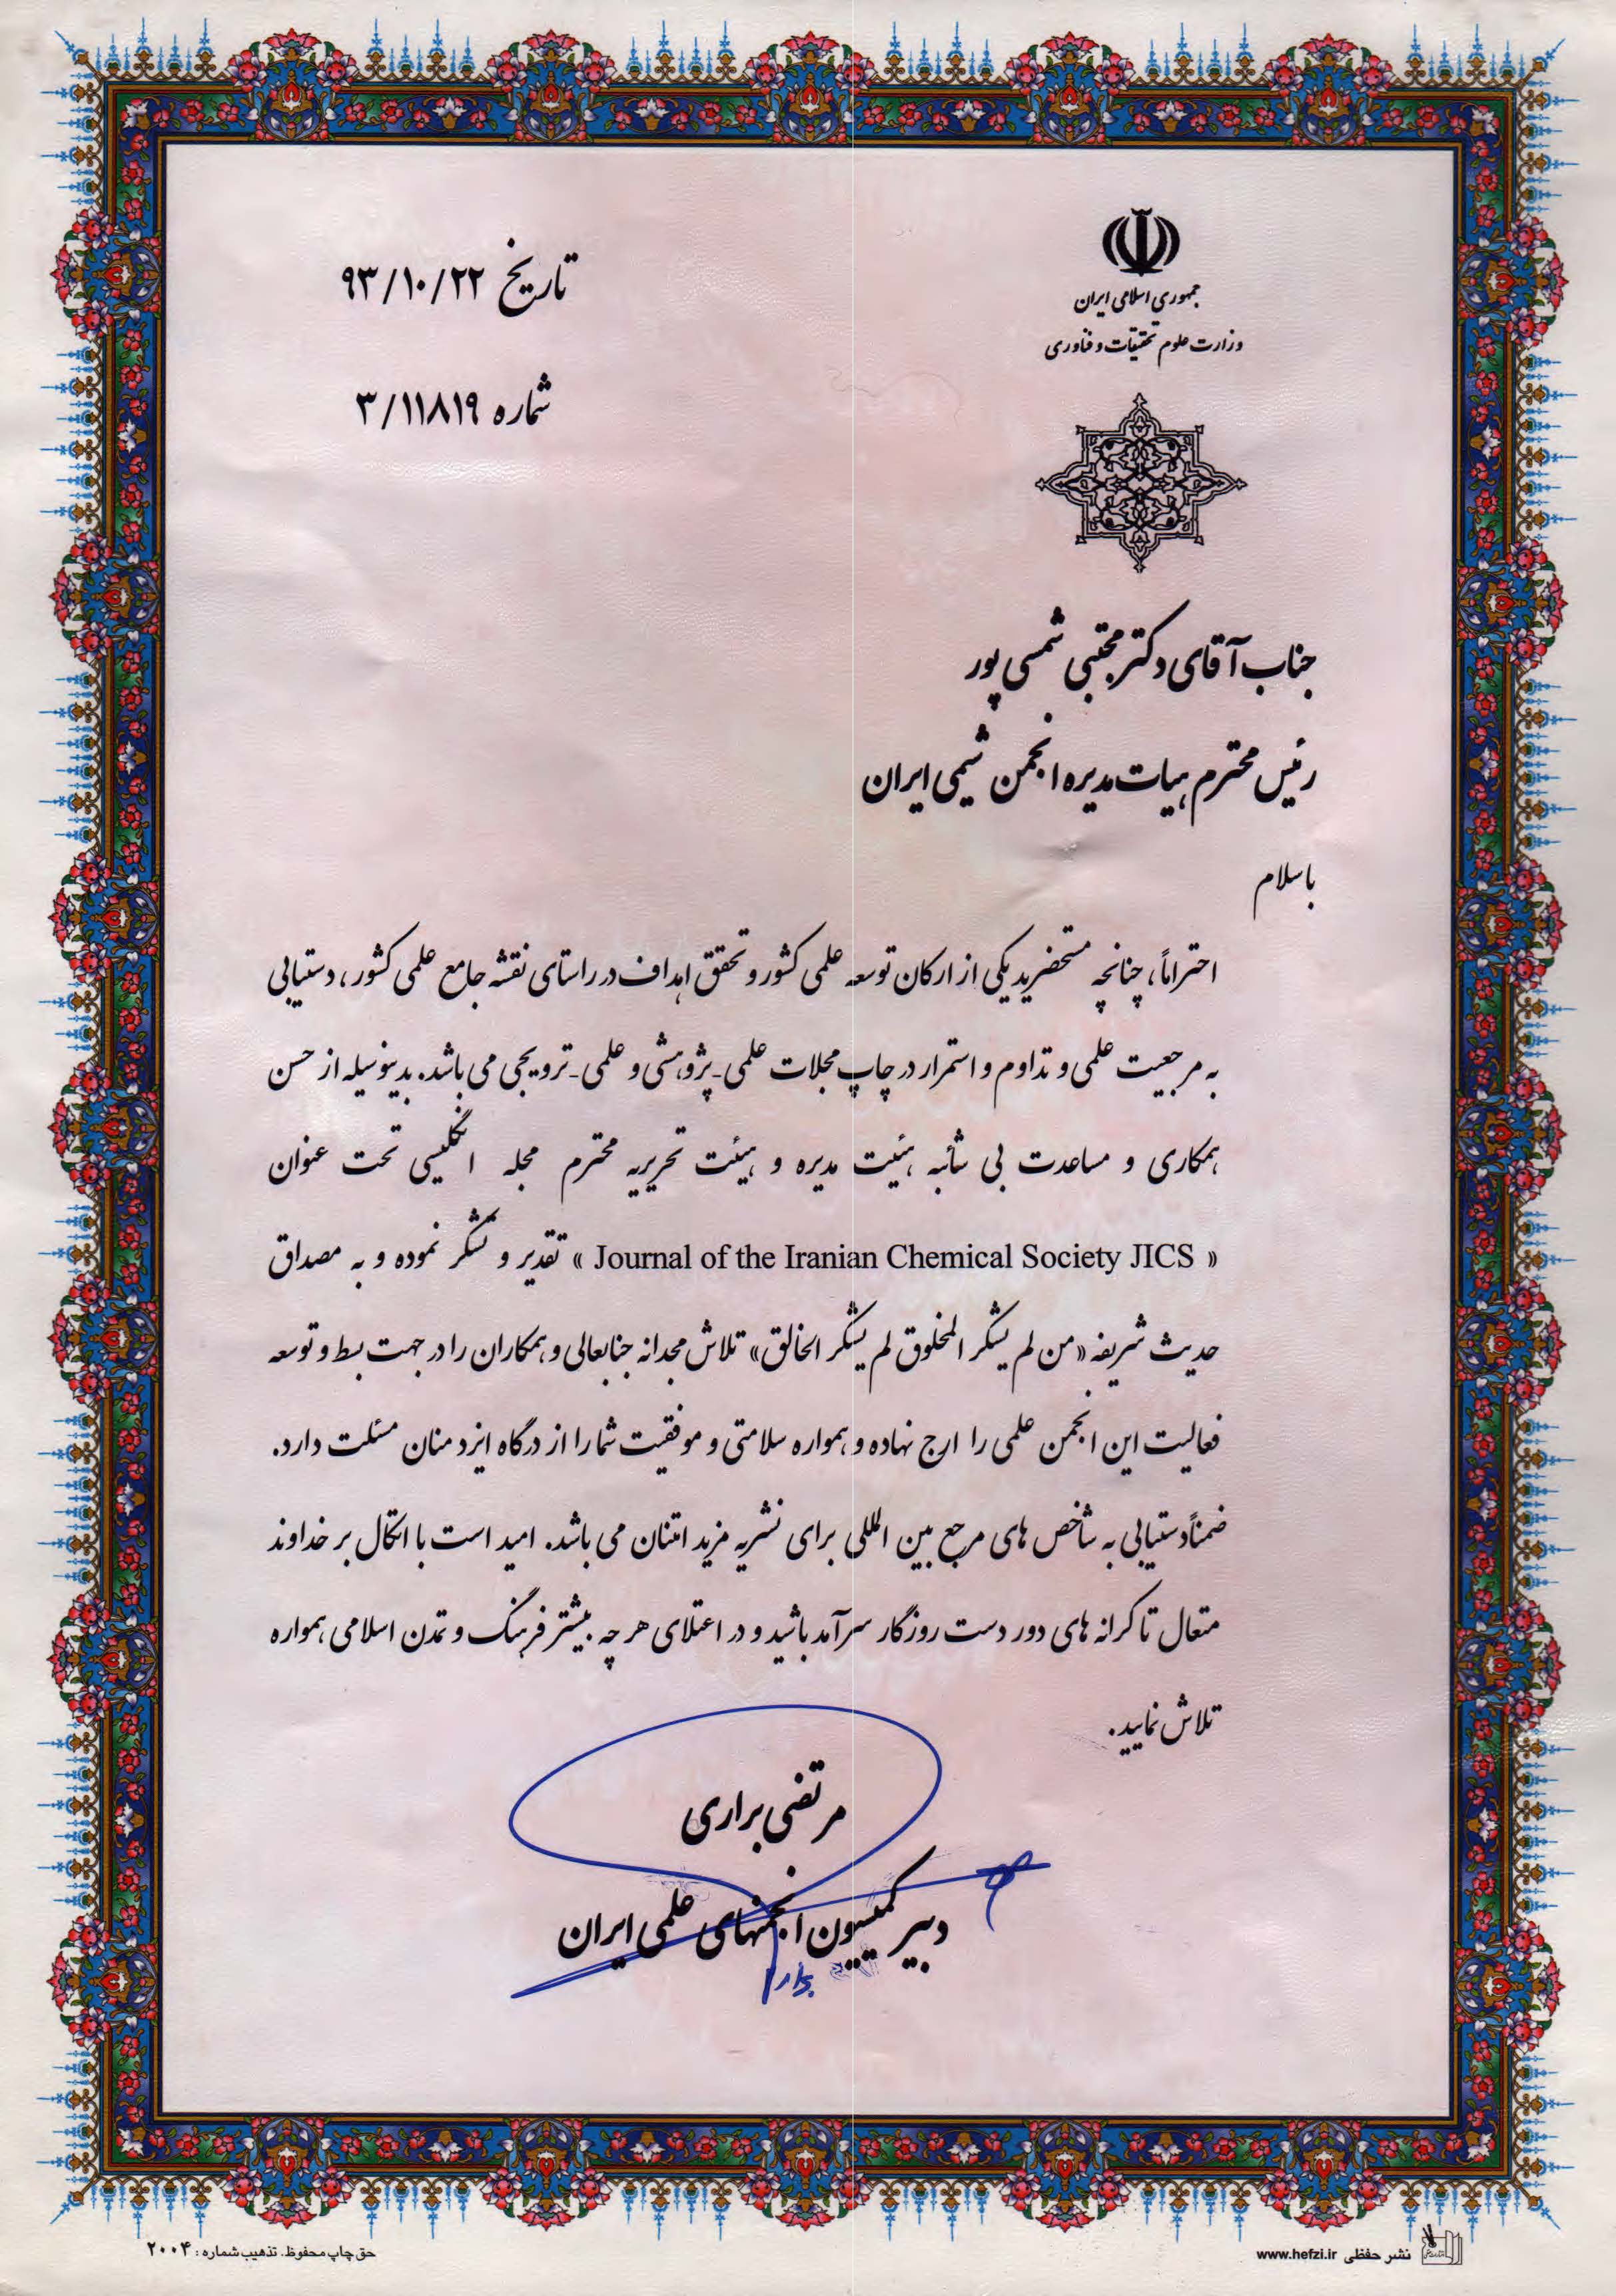 جمهوری اسلامی ایران
وزارت علوم تحقیقات و فناوری
تاریخ ۹۳/۱۰/۲۲
شماره ۳/۱۱۸۱۹
جناب آقای دکتر مجتبی شمسی پور
رئیس محترم هیات مدیره انجمن شیمی ایران
باسلام
احتراماً، چنانچه مستحضرید یکی از ارکان توسعه علمی کشور و تحقق اهداف در راستای نقشه جامع علمی کشور، دستیابی
به مرجعیت علمی و تداوم و استمرار در چاپ مجلات علمی-پژوهشی و علمی-ترویجی می باشد. بدینوسیله از حسن
همکاری و مساعدت بی شائبه هیئت مدیره و هیئت تحریریه محترم مجله انگلیسی تحت عنوان
« Journal of the Iranian Chemical Society JICS » تقدیر و تشکر نموده و به مصداق
حدیث شریفه «من لم یشکر المخلوق لم یشکر الخالق» تلاش مجدانه جنابعالی و همکاران را در جهت بسط و توسعه
فعالیت این انجمن علمی را ارج نهاده و همواره سلامتی و موفقیت شما را از درگاه ایزد منان مسئلت دارد.
ضمناً دستیابی به شاخص های مرجع بین المللی برای نشریه مزید امتنان می باشد. امید است با اتکال بر خداوند
متعال تا کرانه های دور دست روزگار سرآمد باشید و در اعتلای هر چه بیشتر فرهنگ و تمدن اسلامی همواره
تلاش نمایید.
مرتضی براری
دبیر کمیسیون انجمنهای علمی ایران
نشر حفظی www.hefzi.ir
حق چاپ محفوظ. تذهیب شماره : ۲۰۰۴